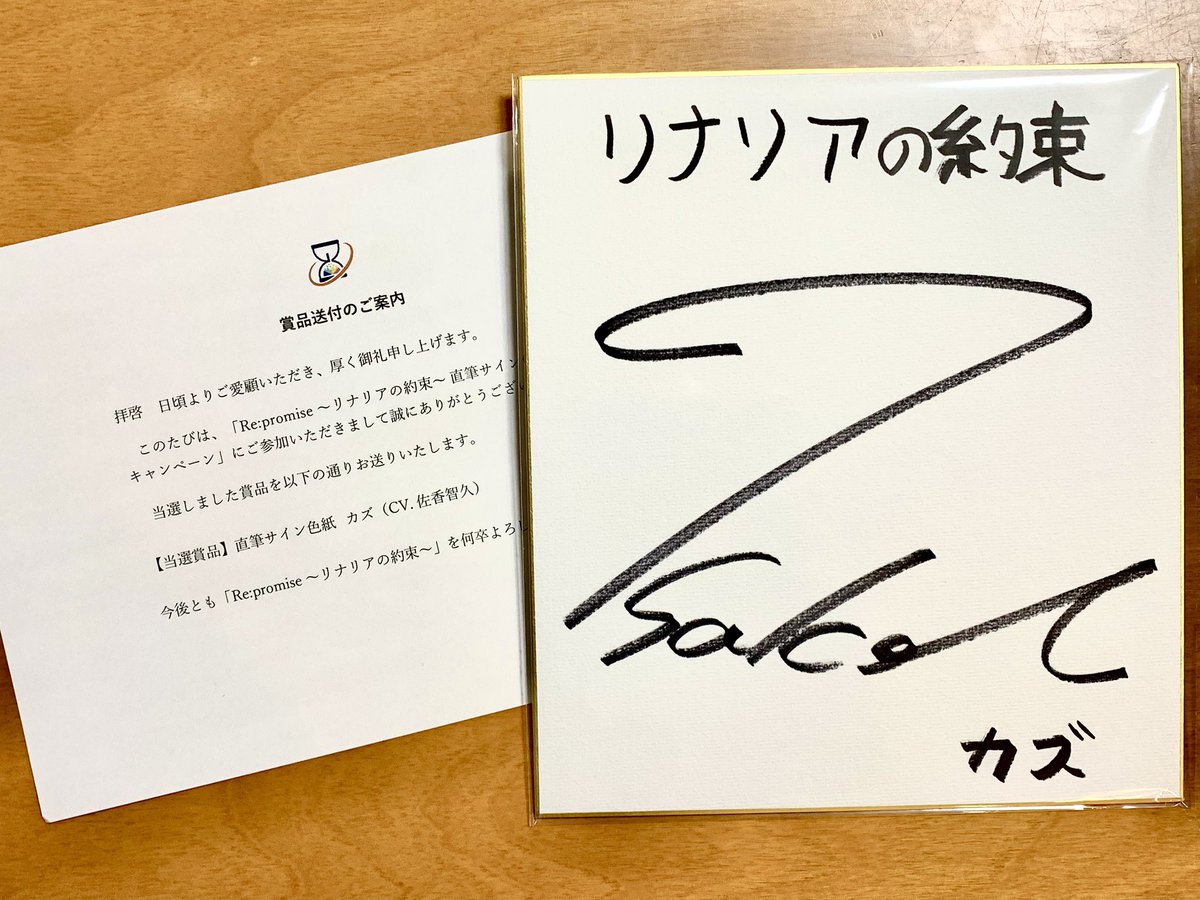 賞品送付のご案内
拝啓　日頃よりご愛顧いただき、厚く御礼申し上げます。
このたびは、「Re:promise ～リナリアの約束～ 直筆サイン
キャンペーン」にご参加いただきまして誠にありがとうござい
当選しました賞品を以下の通りお送りいたします。
【当選賞品】直筆サイン色紙 カズ（CV. 佐香智久）
今後とも「Re:promise ～リナリアの約束～」を何卒よろし
リナリアの約束
カズ